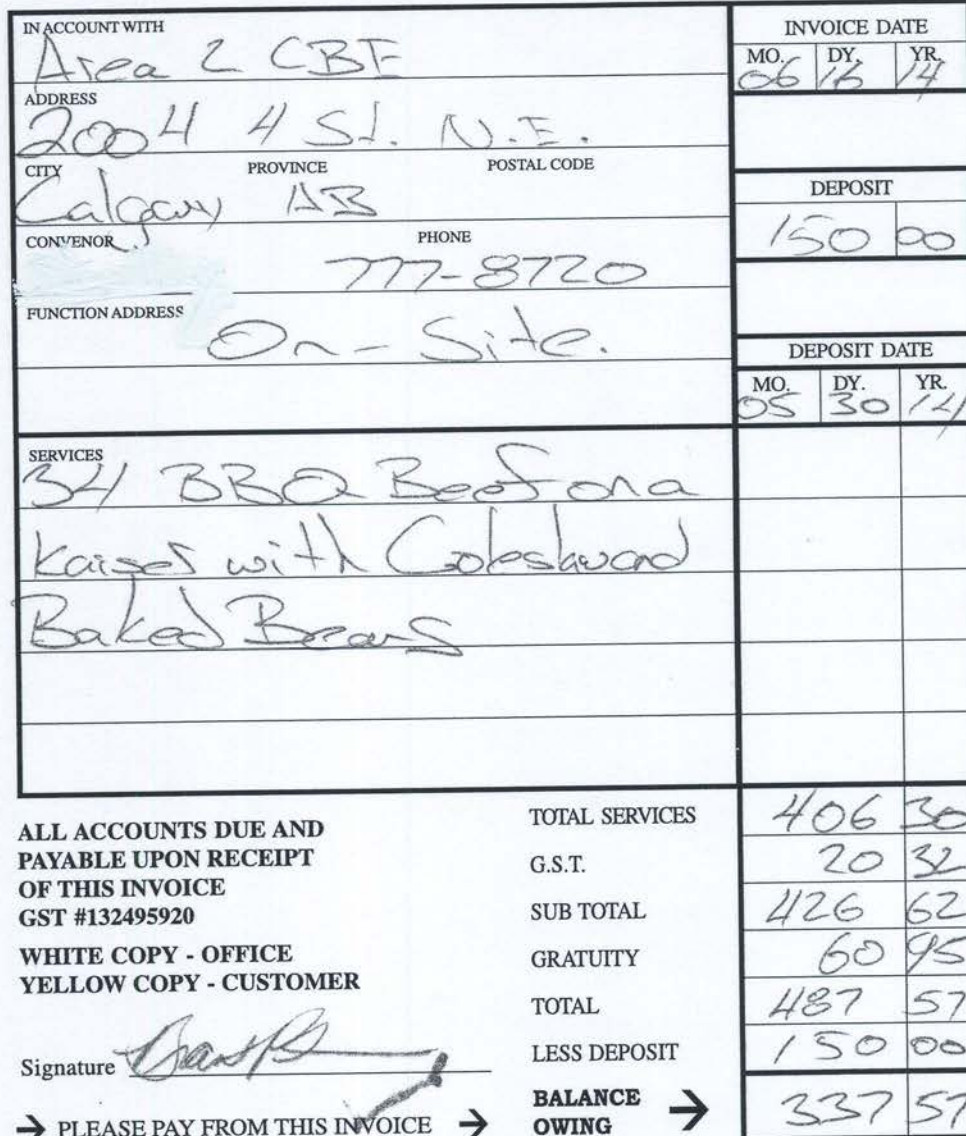 IN ACCOUNT WITH
Area 2 CBE
ADDRESS
2004 4 St. N.E.
CITY PROVINCE POSTAL CODE
Calgary AB
CONVENOR PHONE
777-8720
FUNCTION ADDRESS
On-Site.
INVOICE DATE
MO. DY. YR.
06 16 14
DEPOSIT
150 00
DEPOSIT DATE
MO. DY. YR.
05 30 14
SERVICES
34 BBQ Beef on a
Kaiser with Coleslaw and
Baked Beans
ALL ACCOUNTS DUE AND
PAYABLE UPON RECEIPT
OF THIS INVOICE
GST #132495920
WHITE COPY - OFFICE
YELLOW COPY - CUSTOMER
Signature
→ PLEASE PAY FROM THIS INVOICE →
TOTAL SERVICES 406 30
G.S.T. 20 32
SUB TOTAL 426 62
GRATUITY 60 95
TOTAL 487 57
LESS DEPOSIT 150 00
BALANCE
OWING → 337 57